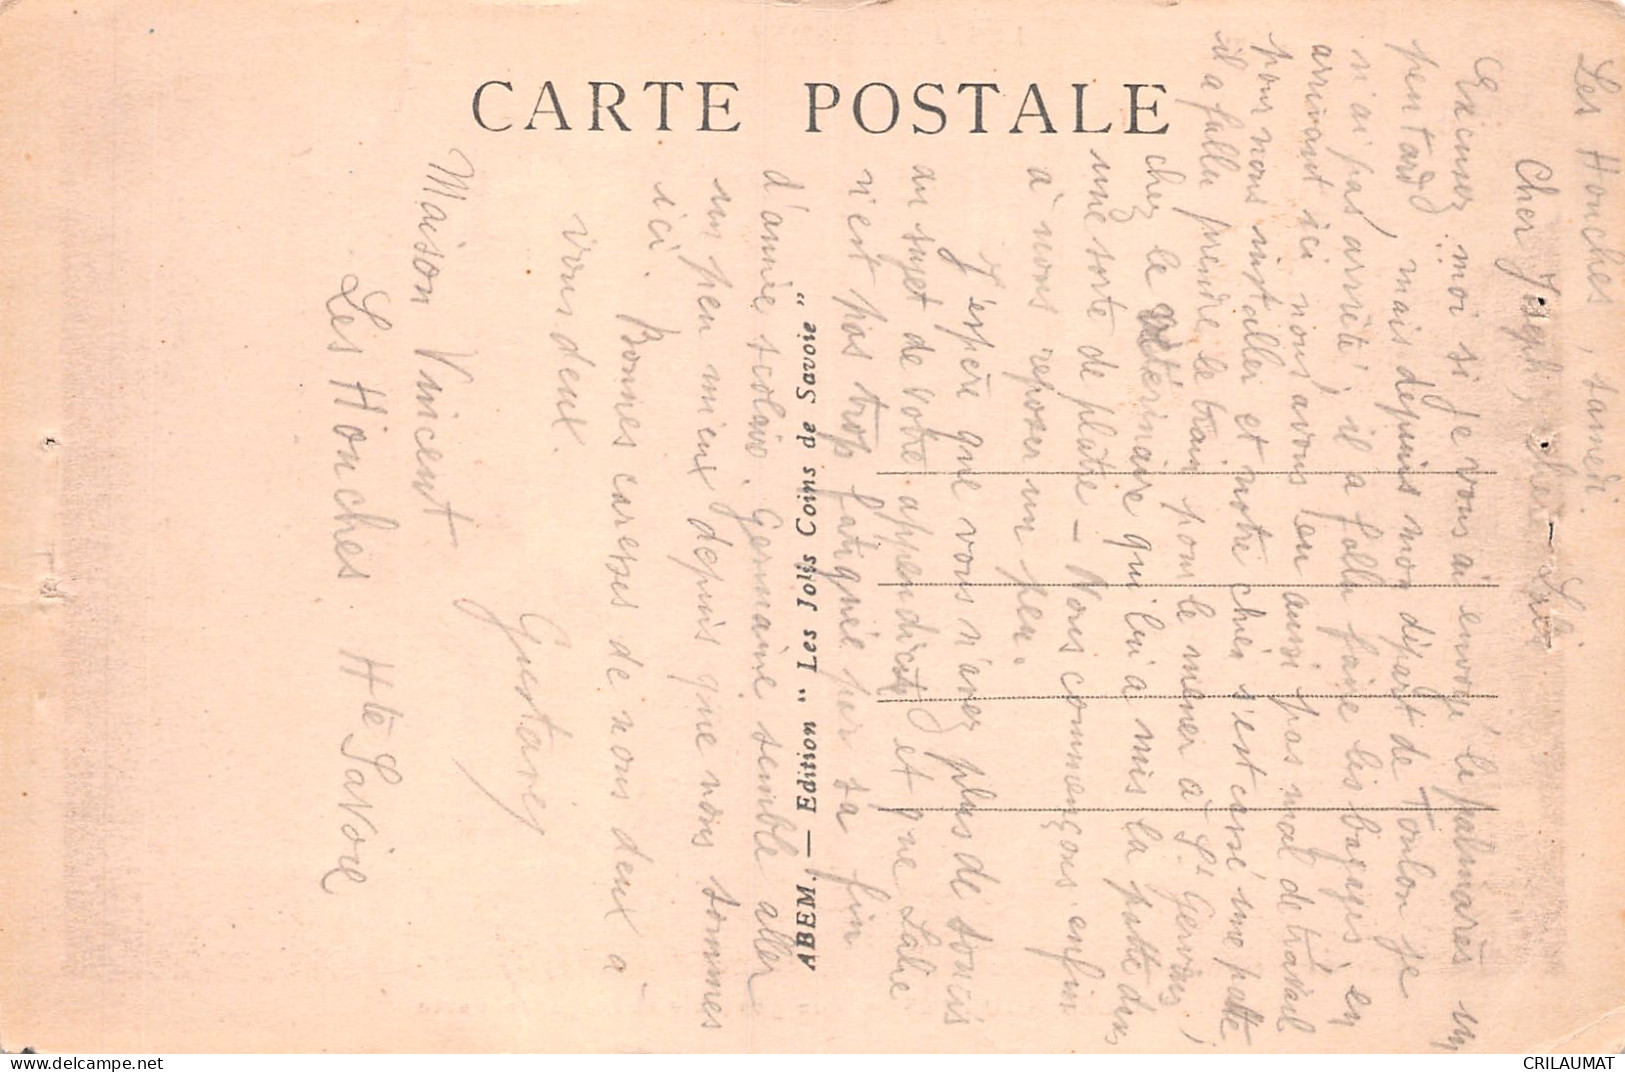 CARTE POSTALE
ABEM. — Edition " Les Jolis Coins de Savoie "
Les Houches, samedi.
Cher Joseph, chère
Excusez-moi si je vous ai envoyé le palmarès un
peu tard, mais depuis mon départ de Toulon je
n'ai pas arrêté, il a fallu faire les bagages, en
arrivant ici nous avons eu aussi pas mal de travail
pour nous installer et notre chien s'est cassé une patte
il a fallu prendre le train pour le mener à St Gervais,
chez le vétérinaire qui lui a mis la patte dans
une sorte de plâtre — Nous commençons enfin
à nous reposer un peu.
J'espère que vous n'avez plus de soucis
au sujet de votre appendicite et que Lalie
n'est pas trop fatiguée par sa fin
d'année scolaire. Germaine semble aller
un peu mieux depuis que nous sommes
ici. Bonnes caresses de nous deux à
vous deux.
Maison Vincent
Les Houches. Hte Savoie
CRILAUMAT